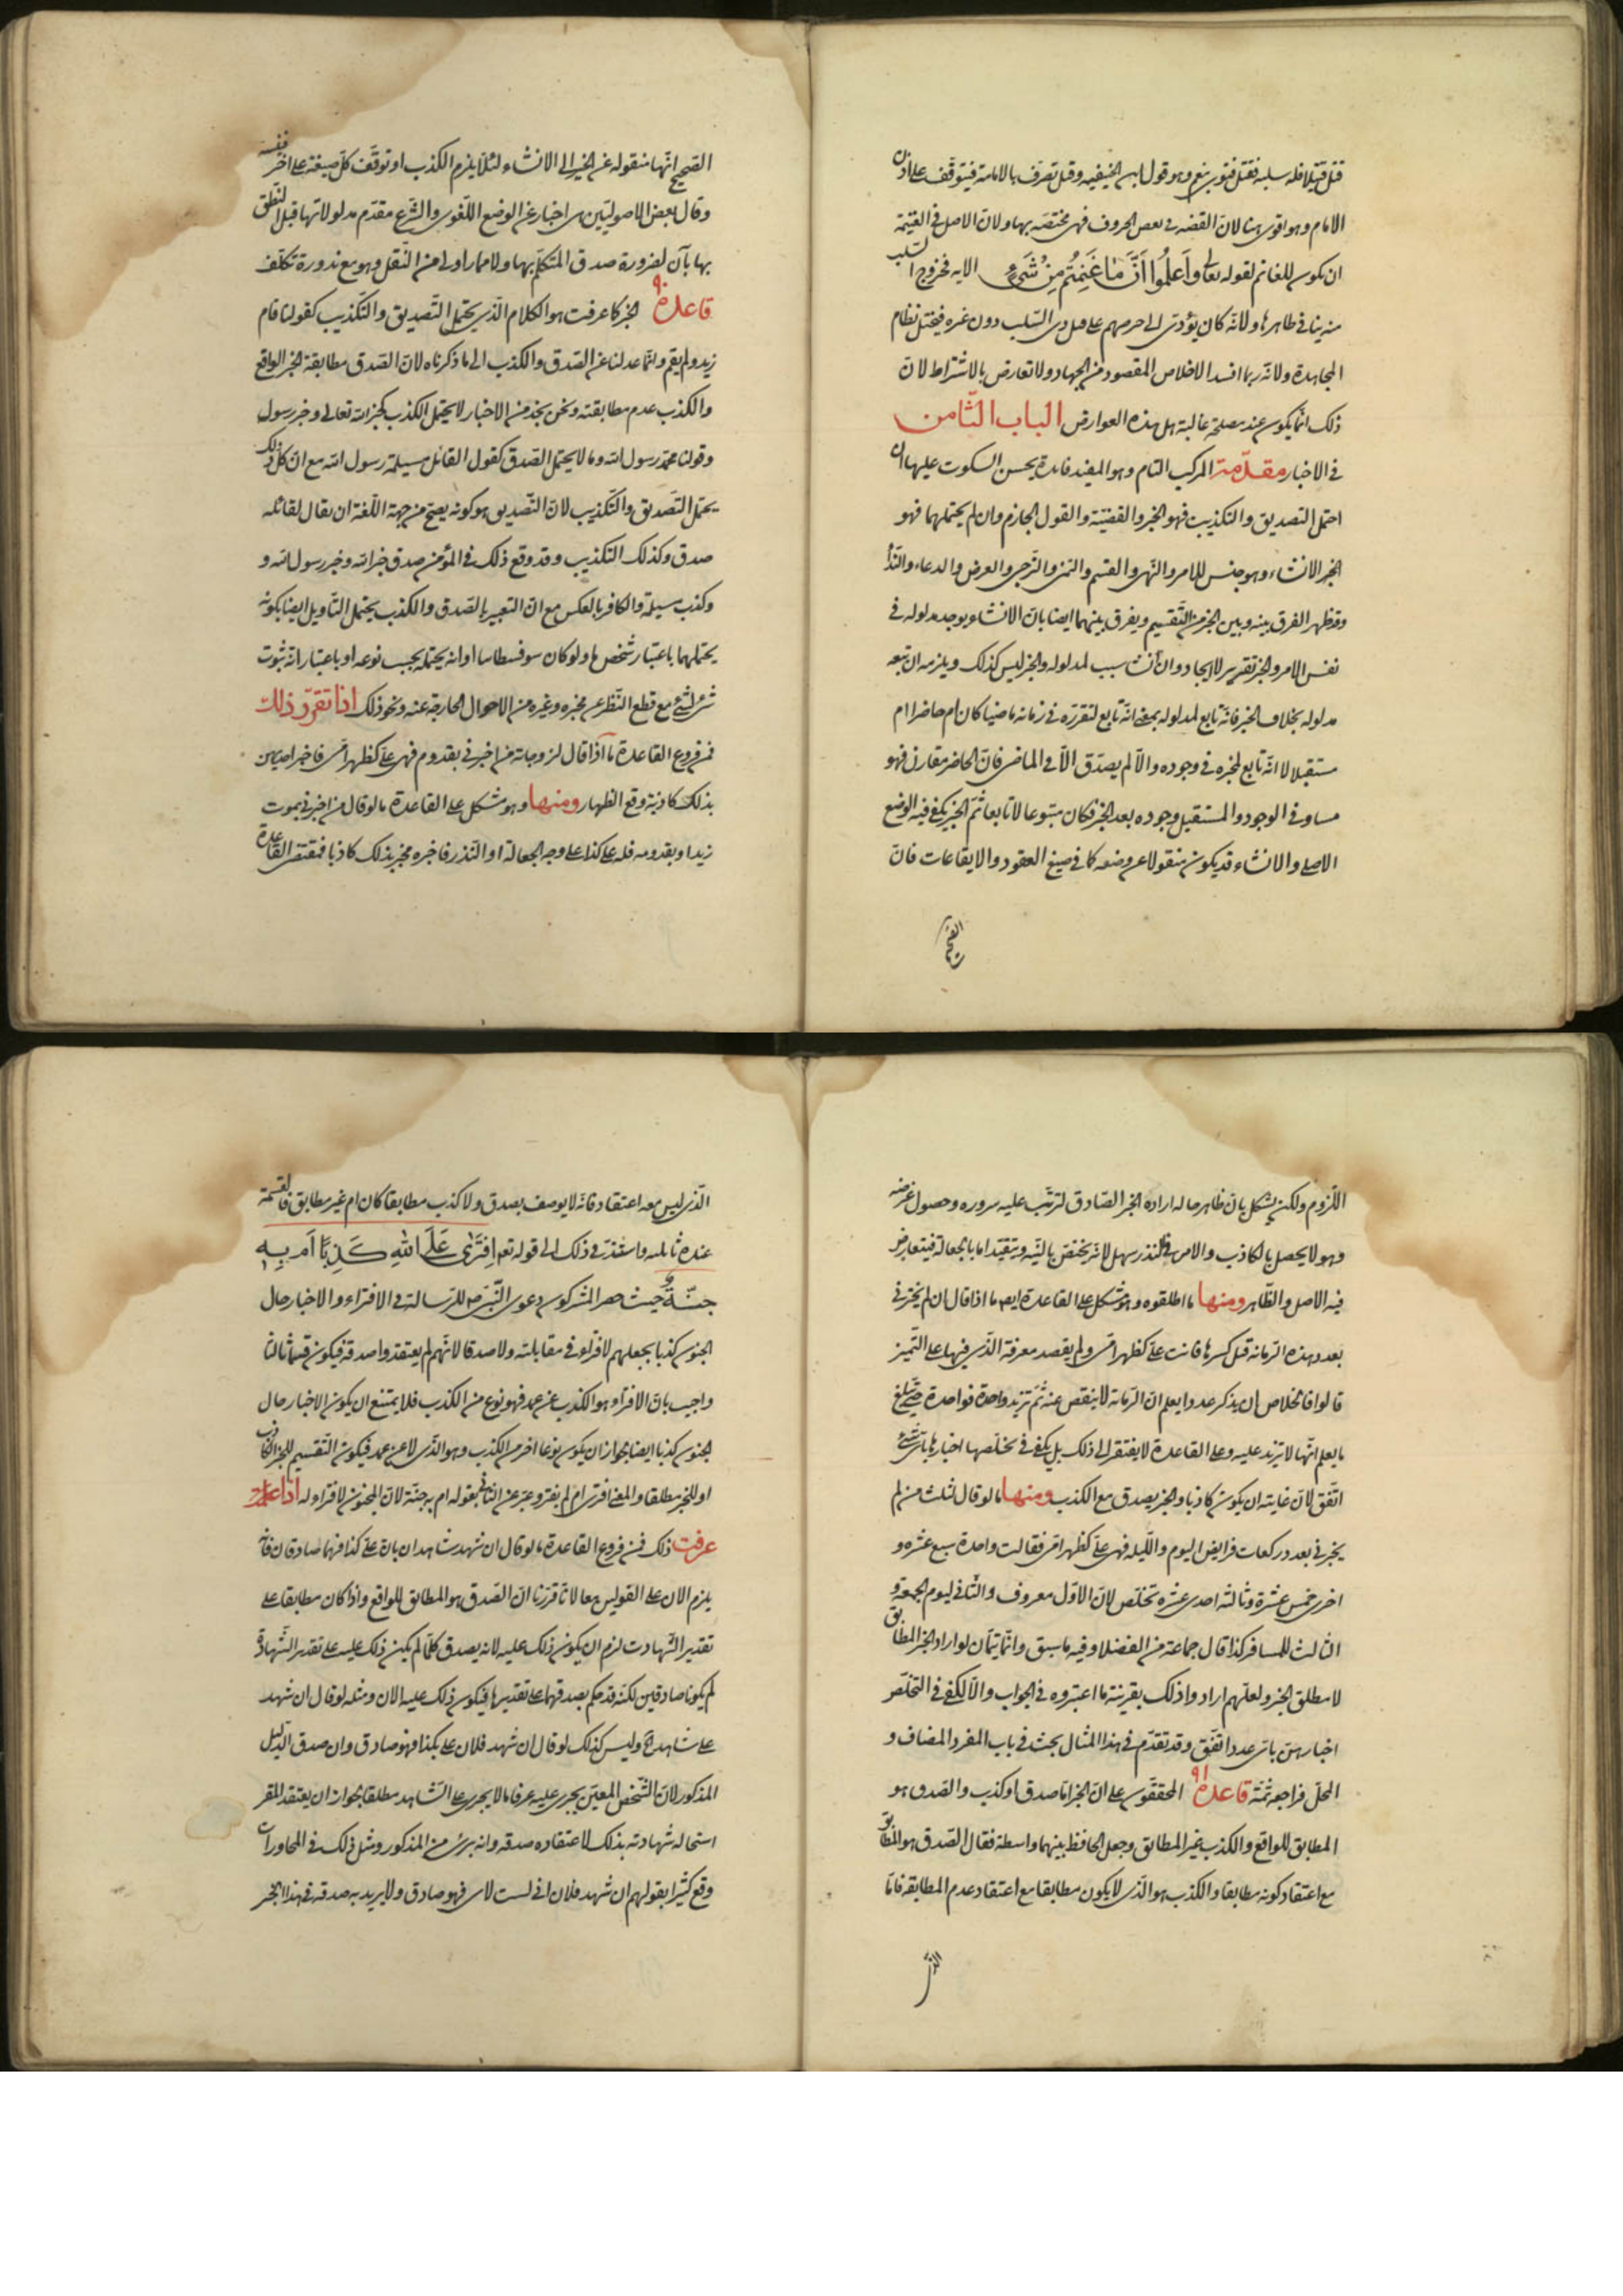 قتل قتيلا فله سلبه فقيل فتوى نعم وهو قول ابن الجنيد وقيل تصرف بالامامة فيتوقف على اذن
الامام وهو اقوى هنا لان القضية في بعض الحروف فهي مختصه بها ولان الاصل في الغنيمة
ان يكون للغانم لقوله تعالى وَاَعلَمُوا اَنَّ مٰا غَنِمتُم مِنْ شَيءٍ الايه فخروج السلب
منه ينافي ظاهرها ولانه كان يؤدى الى حرصهم على قتل ذى السلب دون غيره فيختل نظام
المجاهدة ولانه ربما افسد الاخلاص المقصود من الجهاد ولا تعارض بالاشتراط لان
ذلك انما يكون عند مصلحة غالبة على هذه العوارض الباب الثامن
في الاخبار مقدمة المركب التام وهو المفيد فايدة يحسن السكوت عليها ان
احتمل التصديق والتكذيب فهو الخبر والقضية والقول الجازم وان لم يحتملهما فهو
الانشاء وهو جنس للامر والنهى والقسم والتمنى والترجى والعرض والدعاء والنداء
وقد ظهر الفرق بينه وبين الخبر من التقسيم ويفرق بينهما ايضا بان الانشاء يوجد مدلوله في
نفس الامر والخبر تقرير لا ايجاد وان أنشا سبب لمدلوله والخبر ليس كذلك ويلزمه ان يتبعه
مدلوله بخلاف الخبر فانه تابع لمدلوله بمعنى انه تابع لتقرره في زمانه ماضيا كان ام حاضرا ام
مستقبلا لا انه تابع لمخبره في وجوده والا لم يصدق الا في الماضى فان الحاضر مقارن فهو
مساو في الوجود والمستقبل وجوده بعد الخبر فكان متبوعا لا تابعا ثم الخبر يكفى فيه الوضع
الاصلى والانشاء قد يكون منقولا عن وضعه كما في صيغ العقود والايقاعات فان
الصحيح
الصحيح انها منقوله عن الخبر الى الانشاء لئلا يلزم الكذب او توقف كل صيغة على اخر
وقال بعض الاصوليين هى اخبار عن الوضع اللغوى والشرع مقدم مدلولاتها قبل النطق
بها بآن لضرورة صدق المتكلم بها والاضمار اولى من النقل وهو مع ندوره تكلف
قاعدة ٩٠ الخبر كما عرفت هو الكلام الذى يحتمل التصديق والتكذيب كقولنا قام
زيد ولم يقم وانما عدلنا عن الصدق والكذب الى ما ذكرناه لان الصدق مطابقة الخبر الواقع
والكذب عدم مطابقته ونحن نجد من الاخبار ما لا يحتمل الكذب كخبر الله تعالى وخبر رسول
وقولنا محمد رسول الله وما لا يحتمل الصدق كقول القائل مسيلمة رسول الله مع ان كل ذلك
يحتمل التصديق والتكذيب لان التصديق هو كونه يصح من جهة اللغة ان يقال لقائله
صدق وكذلك التكذيب وقد وقع ذلك في المؤمن صدق خبر الله وخبر رسول الله و
وكذب مسيلمة والكافر بالعكس مع ان التعبير بالصدق والكذب يحتمل التاويل ايضا بكونه
يحتملهما باعتبار شخص ما ولو كان سوفسطايا او انه يحتمله بحسب نوعه او باعتبار انه ثبوت
شئ لشئ مع قطع النظر عن مخبره وغيره من الاحوال الخارجة عنه ونحو ذلك اذا تقرر ذلك
فمن فروع القاعدة ما اذا قال لزوجاته من اخبرنى بقدوم فهى على كظهر امى فاخبر احديهن
بذلك كاذبة وقع الظهار ومنها وهو مشكل على القاعدة ما لو قال من اخبرنى بموت
زيد او بقدومه فله على كذا على وجه الجعالة او النذر فاخبره مخبر بذلك كاذبا فمقتضى القاعدة
اللزوم ولكن يشكل بان ظاهر حاله اراده الخبر الصادق لترتب عليه سروره وحصول غرضه
وهو لا يحصل بالكاذب والامر في النذر سهل لانه يختص بالنية وتقيد اما بالجعالة فيتعارض
فيه الاصل والظاهر ومنها ما اطلقوه وهو مشكل على القاعدة ايضا ما اذا قال ان لم يخبرنى
بعدد هذه الرمانة قبل كسرها فانت على كظهر امى ولم يقصد معرفة الذى فيها على التميز
قالوا فالخلاص ان يذكر عددا يعلم ان الرمانة لا ينقص عنه ثم تزيد واحدة فواحدة حتى تبلغ
ما يعلم انها لا تزيد عليه وعلى القاعدة لا يفتقر الى ذلك بل يكفى في تخلصها اخبارها باى شئ
اتفق لان غايته ان يكون كاذبا والخبر يصدق مع الكذب ومنها ما لو قال لثلث من لم
يخبرنى بعدد ركعات فرايض اليوم والليله فهى على كظهر امى فقالت واحدة سبع عشره و
اخرى خمس عشرة وثالثه احدى عشره تخلص لان الاول معروف والثانى ليوم الجمعة و
الثالث للمسافر كذا قال جماعة من الفضلا وفيه ما سبق وانما يتم ان لو اراد الخبر المطابق
لا مطلق الخبر ولعلهم ارادوا ذلك بقرينة ما اعتبروه في الجواب والا لكفى في التخلص
اخبارهن باى عدد اتفق وقد تقدم في هذا المثال بحث في باب المفرد المضاف و
المحلى فراجعه ثمة قاعدة ٩١ المحققون على ان الخبر اما صدق او كذب والصدق هو
المطابق للواقع والكذب غير المطابق وجعل الجاحظ بينهما واسطة فقال الصدق هو المطابق
مع اعتقاد كونه مطابقا والكذب هو الذى لا يكون مطابقا مع اعتقاد عدم المطابقة فاما
الذى
الذى ليس معه اعتقاد فانه لا يوصف بصدق ولا كذب مطابقا كان ام غير مطابق فالقسمة
عنده ثالثه واستند في ذلك الى قوله تعالى اَفتَرٰى عَلَى اللهِ كَذِبًا اَم بِهِ
جِنَّةٌ حيث حصر المشركون دعوى النبى ص للرسالة في الافتراء والاخبار حال
الجنون كذبا بجعلهم لافتراء في مقابلته ولا صدقا لانهم لم يعتقدوا صدقه فيكون قسما ثالثا
واجيب بان الافتراء هو الكذب عن عمد فهو نوع من الكذب فلا يمتنع ان يكون الاخبار حال
الجنون كذبا ايضا لجواز ان يكون نوعا اخر من الكذب وهو الذى لا عن عمد فيكون التقسيم للخبر الكاذب
او للخبر مطلقا والمعنى افترى ام لم يفتر وعبر عن الثانى بقوله ام به جنة لان المجنون لا افتراء له اذا
عرفت ذلك فمن فروع القاعدة ما لو قال ان شهد شاهدان بان على كذا فهما صادقان فانه
يلزم الان على القولين معا لانا قررنا ان الصدق هو المطابق للواقع واذا كان مطابقا على
تقدير الشهادة لزم ان يكون ذلك عليه لانه يصدق كلما لم يكن ذلك عليه على تقدير الشهادة
لم يكونا صادقين لكنه قد حكم بصدقهما على تقديرها فيكون ذلك عليه الان ومثله لو قال ان شهد
على شاهد الخ وليس كذلك لو قال ان شهد فلان على بكذا فهو صادق وان صدق الدليل
المذكور لان الشخص المعين يجرى عليه عرفا ما لا يجرى على الشاهد مطلقا لجواز ان يعتقد المقر
استحاله شهادته بذلك لاعتقاده صدقه وانه برئ من المذكور ومثل ذلك في المحاورات
وقع كثيرا بقولهم ان شهد فلان انى لست لابى فهو صادق ولا يريد به صدقه في هذا الخبر